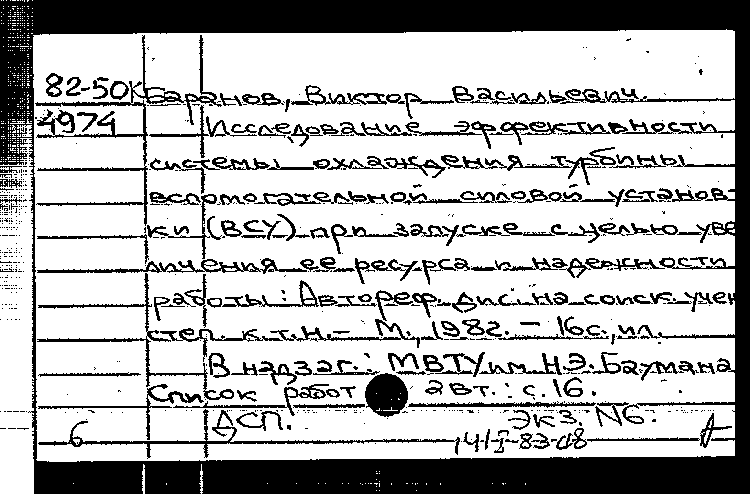 82-50К Баранов, Виктор Васильевич.
4974 Исследование эффективности
системы охлаждения турбины
вспомогательной силовой установ-
ки (ВСУ) при запуске с целью уве
личения ее ресурса и надежности
работы: Автореф. дис. на соиск учен
степ. к.т.н. - М., 1982. - 16с., ил.
В надзаг.: МВТУ им. Н.Э. Баумана
Список работ авт.: с. 16.
6 ДСП. Экз. N6.